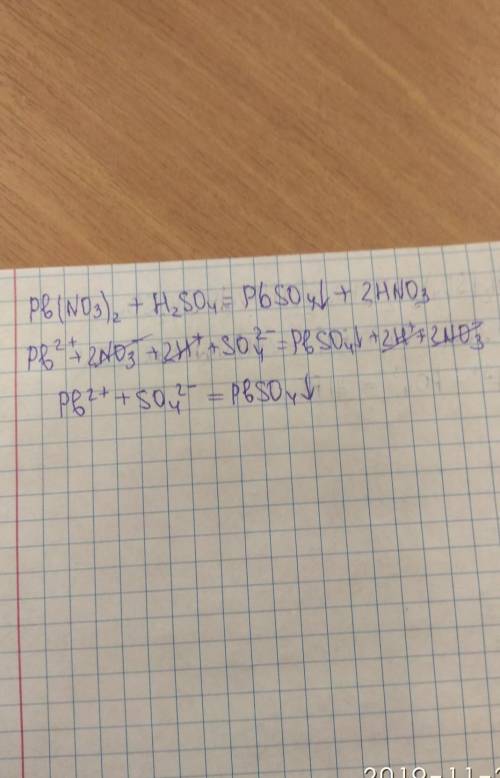 Pb(NO3)2 + H2SO4 = PbSO4↓ + 2HNO3
Pb²⁺ + 2NO3⁻ + 2H⁺ + SO4²⁻ = PbSO4↓ + 2H⁺ + 2NO3⁻
Pb²⁺ + SO4²⁻ = PbSO4↓
2019-11-